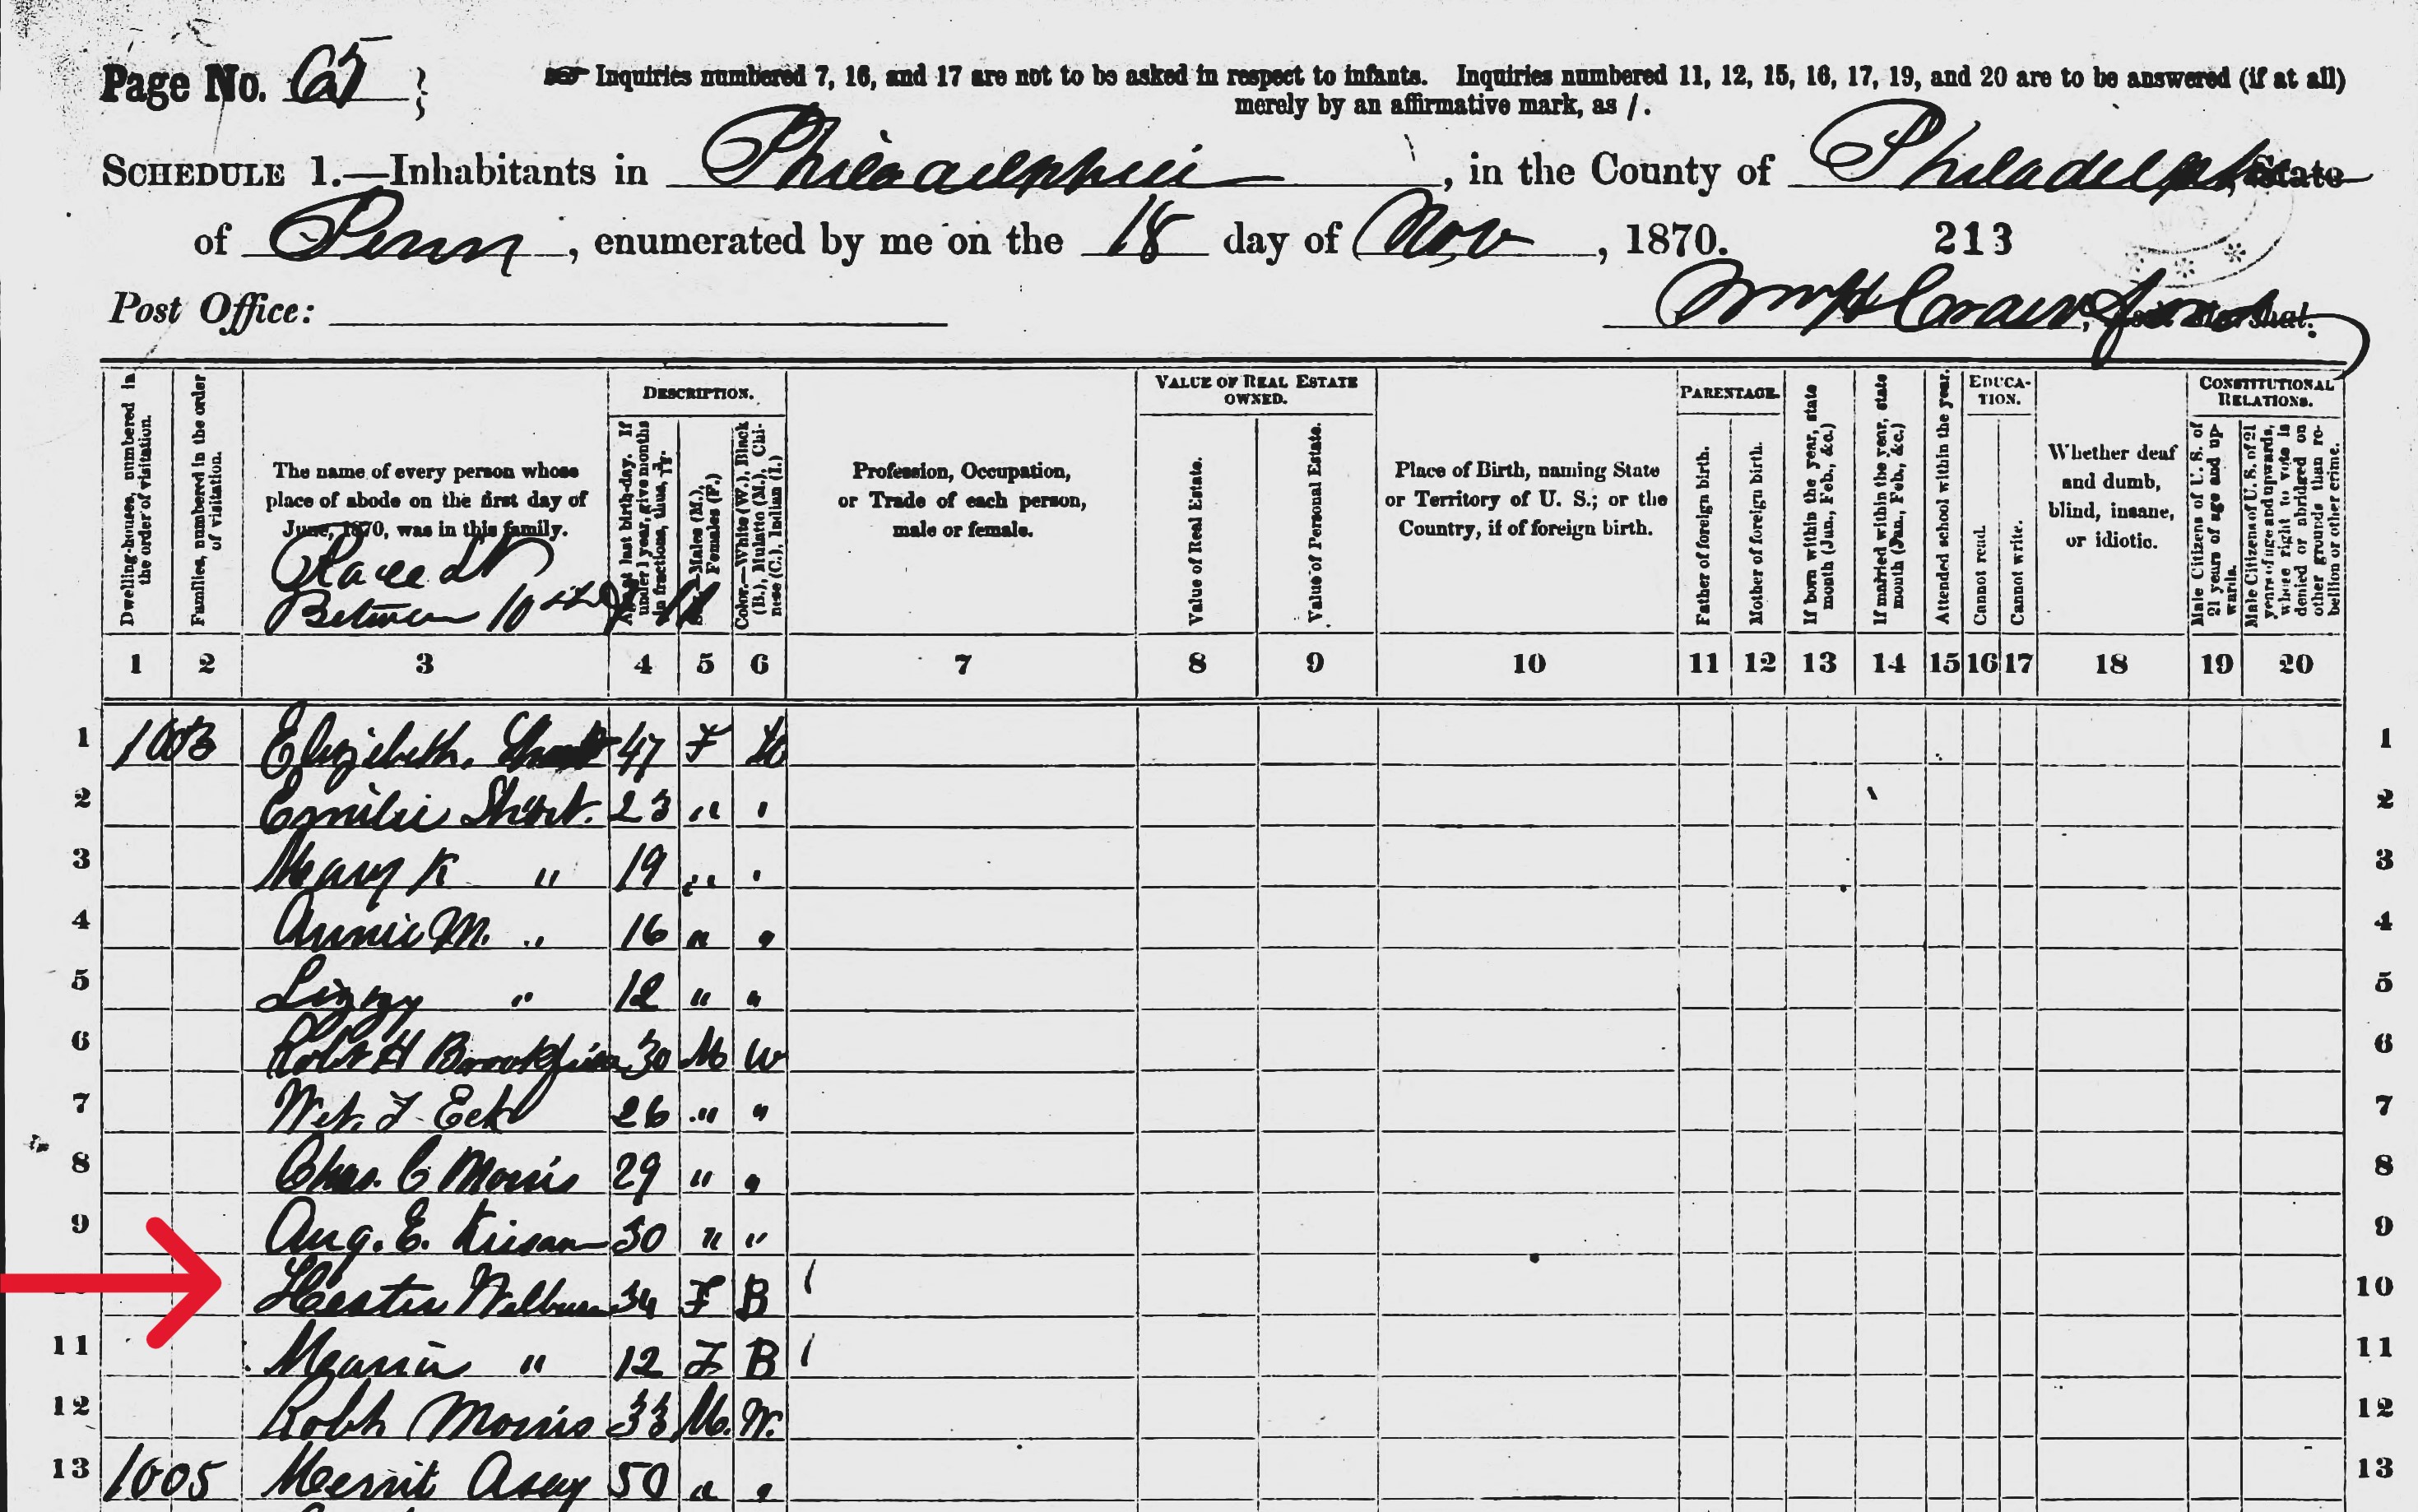 Page No. 65
Inquiries numbered 7, 16, and 17 are not to be asked in respect to infants. Inquiries numbered 11, 12, 15, 16, 17, 19, and 20 are to be answered (if at all)
merely by an affirmative mark, as /.
SCHEDULE 1.—Inhabitants in Philadelphia, in the County of Philadelphia, State
of Penn, enumerated by me on the 18 day of Nov, 1870. 213
Post Office:
Wm H Crawford, Ass't Marshal.
Dwelling-houses, numbered in the order of visitation.
Families, numbered in the order of visitation.
The name of every person whose
place of abode on the first day of
June, 1870, was in this family.
Race St
Between 10th & 11
DESCRIPTION.
Age at last birth-day. If under 1 year, give months in fractions, thus,
Sex.—Males (M.), Females (F.)
Color.—White (W.), Black (B.), Mulatto (M.), Chinese (C.), Indian (I.)
Profession, Occupation,
or Trade of each person,
male or female.
VALUE OF REAL ESTATE
OWNED.
Value of Real Estate.
Value of Personal Estate.
Place of Birth, naming State
or Territory of U. S.; or the
Country, if of foreign birth.
PARENTAGE.
Father of foreign birth.
Mother of foreign birth.
If born within the year, state month (Jan., Feb., &c.)
If married within the year, state month (Jan., Feb., &c.)
Attended school within the year.
EDUCA-
TION.
Cannot read.
Cannot write.
Whether deaf
and dumb,
blind, insane,
or idiotic.
CONSTITUTIONAL
RELATIONS.
Male Citizens of U. S. of 21 years of age and upwards.
Male Citizens of U. S. of 21 years of age and upwards, whose right to vote is denied or abridged on other grounds than rebellion or other crime.
1 2 3 4 5 6 7 8 9 10 11 12 13 14 15 16 17 18 19 20
1 1003 Elizabeth 47 F W 1
2 Emilie Short. 23 " " 2
3 Mary K " 19 " " 3
4 Annie M. " 16 " " 4
5 Lizzy " 12 " " 5
6 Robt H 30 M W 6
7 F Eck 26 " " 7
8 Chas. C Morris 29 " " 8
9 Aug. E. 30 " " 9
Hester Wilburn 34 F B / 10
11 " 12 F B / 11
12 Robt Morris 33 M. W. 12
13 1005 Merrit Asay 50 " " 13